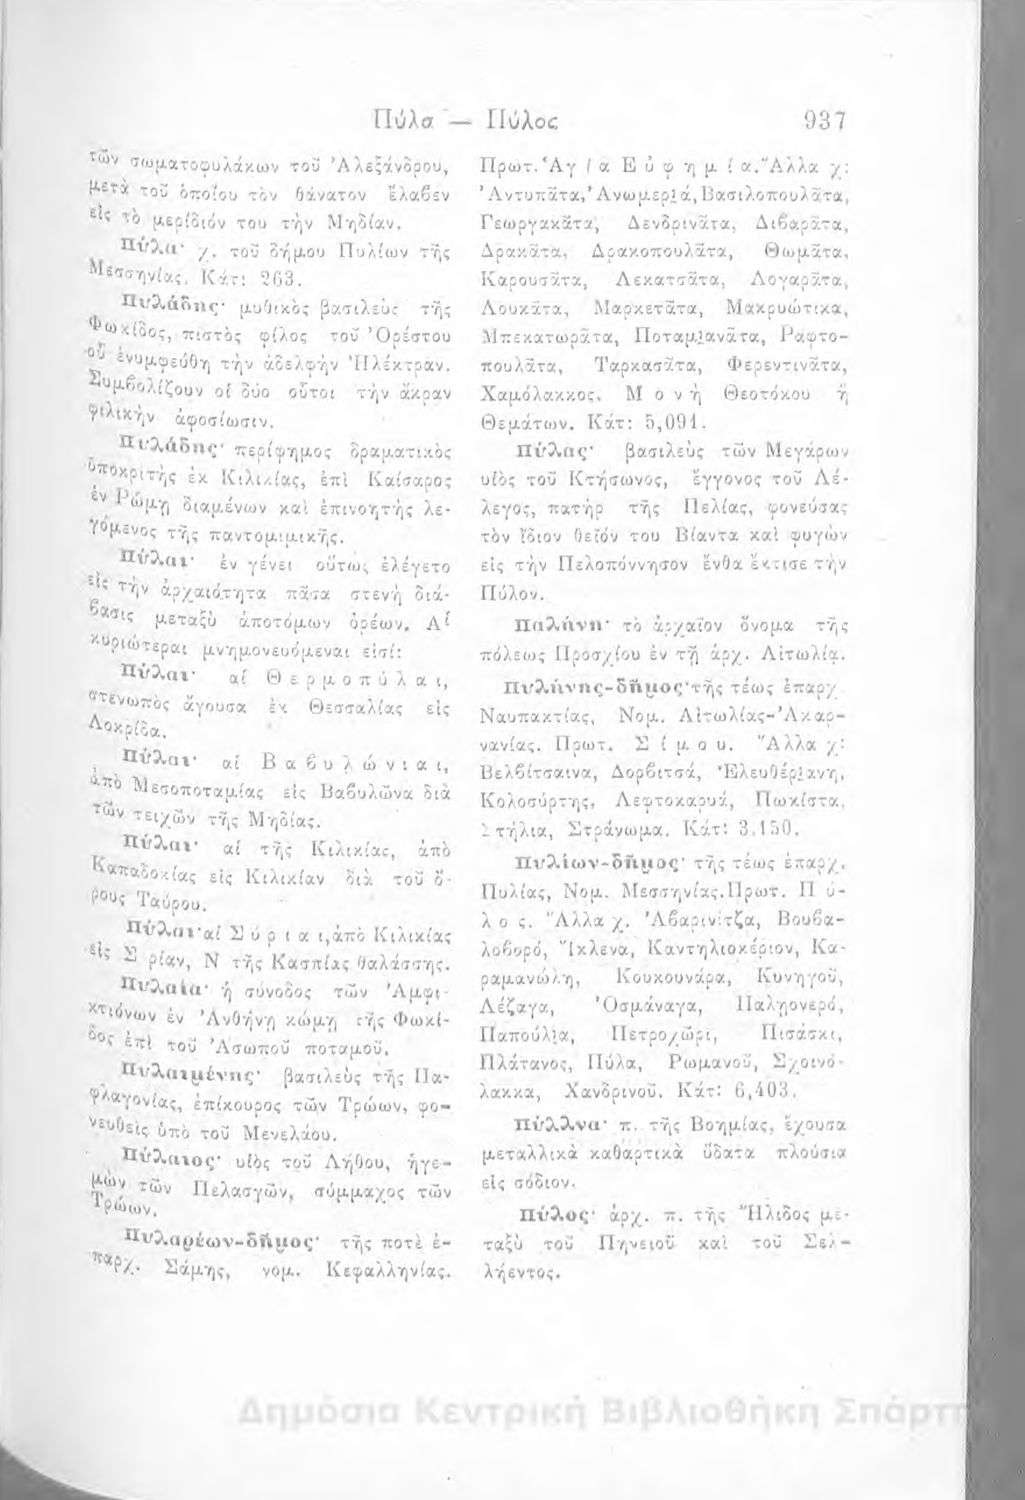 Πύλα — Πύλος 937
τῶν σωματοφυλάκων τοῦ Ἀλεξάνδρου,
μετὰ τοῦ ὁποίου τὸν θάνατον ἔλαβεν
εἰς τὸ μερίδιόν του τὴν Μηδίαν.
Πύλα· χ. τοῦ δήμου Πυλίων τῆς
Μεσσηνίας. Κάτ: 263.
Πυλάδης· μυθικὸς βασιλεὺς τῆς
Φωκίδος, πιστὸς φίλος τοῦ Ὀρέστου
οὗ ἐνυμφεύθη τὴν ἀδελφὴν Ἠλέκτραν.
Συμβολίζουν οἱ δύο οὗτοι τὴν ἄκραν
φιλικὴν ἀφοσίωσιν.
Πυλάδης· περίφημος δραματικὸς
ὑποκριτὴς ἐκ Κιλικίας, ἐπὶ Καίσαρος
ἐν Ῥώμῃ διαμένων καὶ ἐπινοητὴς λε-
γόμενος τῆς παντομιμικῆς.
Πύλαι· ἐν γένει οὕτως ἐλέγετο
εἰς τὴν ἀρχαιότητα πᾶσα στενὴ διά-
βασις μεταξὺ ἀποτόμων ὀρέων. Αἱ
κυριώτεραι μνημονευόμεναι εἰσί:
Πύλαι· αἱ Θερμοπύλαι,
στενωπὸς ἄγουσα ἐκ Θεσσαλίας εἰς
Λοκρίδα.
Πύλαι· αἱ Βαβυλώνιαι,
ἀπὸ Μεσοποταμίας εἰς Βαβυλῶνα διὰ
τῶν τειχῶν τῆς Μηδίας.
Πύλαι· αἱ τῆς Κιλικίας, ἀπὸ
Καπαδοκίας εἰς Κιλικίαν διὰ τοῦ ὄ-
ρους Ταύρου.
Πύλαι· αἱ Σύριαι, ἀπὸ Κιλικίας
εἰς Σ ρίαν, Ν τῆς Κασπίας θαλάσσης.
Πυλαία· ἡ σύνοδος τῶν Ἀμφι-
κτιόνων ἐν Ἀνθήνῃ κώμῃ τῆς Φωκί-
δος ἐπὶ τοῦ Ἀσωποῦ ποταμοῦ.
Πυλαιμένης· βασιλεὺς τῆς Πα-
φλαγονίας, ἐπίκουρος τῶν Τρώων, φο-
νευθεὶς ὑπὸ τοῦ Μενελάου.
Πύλαιος· υἱὸς τοῦ Λήθου, ἡγε-
μὼν τῶν Πελασγῶν, σύμμαχος τῶν
Τρώων.
Πυλαρέων-δῆμος· τῆς ποτὲ ἐ-
παρχ. Σάμης, νομ. Κεφαλληνίας.
Πρωτ. Ἁγία Εὐφημία. Ἄλλα χ:
Ἀντυπᾶτα, Ἀνωμεριά, Βασιλοπουλᾶτα,
Γεωργακᾶτα, Δενδρινᾶτα, Διβαρᾶτα,
Δρακᾶτα, Δρακοπουλᾶτα, Θωμᾶτα,
Καρουσᾶτα, Λεκατσᾶτα, Λογαρᾶτα,
Λουκᾶτα, Μαρκετᾶτα, Μακρυώτικα,
Μπεκατωρᾶτα, Ποταμιανᾶτα, Ραφτο-
πουλᾶτα, Ταρκασᾶτα, Φερεντινᾶτα,
Χαμόλακκος. Μονὴ Θεοτόκου ἡ
Θεμάτων. Κάτ: 5,091.
Πύλας· βασιλεὺς τῶν Μεγάρων
υἱὸς τοῦ Κτήσωνος, ἔγγονος τοῦ Λέ-
λεγος, πατὴρ τῆς Πελίας, φονεύσας
τὸν ἴδιον θεῖόν του Βίαντα καὶ φυγὼν
εἰς τὴν Πελοπόννησον ἔνθα ἔκτισε τὴν
Πύλον.
Παλήνη· τὸ ἀρχαῖον ὄνομα τῆς
πόλεως Προσχίου ἐν τῇ ἀρχ. Αἰτωλίᾳ.
Πυλήνης-δῆμος· τῆς τέως ἐπαρχ
Ναυπακτίας, Νομ. Αἰτωλίας-Ἀκαρ-
νανίας. Πρωτ. Σίμου. Ἄλλα χ:
Βελβίτσαινα, Δορβιτσά, Ἐλευθέριανη,
Κολοσύρτης, Λεφτοκαρυά, Πωκίστα,
Στήλια, Στράνωμα. Κάτ: 3,150.
Πυλίων-δῆμος· τῆς τέως ἐπαρχ.
Πυλίας, Νομ. Μεσσηνίας. Πρωτ. Πύ-
λος. Ἄλλα χ. Ἀβαρινίτζα, Βουβα-
λοβορό, Ἴκλενα, Καντηλιοκέριον, Κα-
ραμανώλη, Κουκουνάρα, Κυνηγοῦ,
Λέζαγα, Ὀσμάναγα, Παληονερό,
Παπούλια, Πετροχῶρι, Πισάσκι,
Πλάτανος, Πύλα, Ρωμανοῦ, Σχοινό-
λακκα, Χανδρινοῦ. Κάτ: 6,403.
Πύλλνα· π. τῆς Βοημίας, ἔχουσα
μεταλλικὰ καθαρτικὰ ὕδατα πλούσια
εἰς σόδιον.
Πύλος· ἀρχ. π. τῆς Ἤλιδος με-
ταξὺ τοῦ Πηνειοῦ καὶ τοῦ Σελ-
λήεντος.
Δημόσια Κεντρική Βιβλιοθήκη Σπάρτη